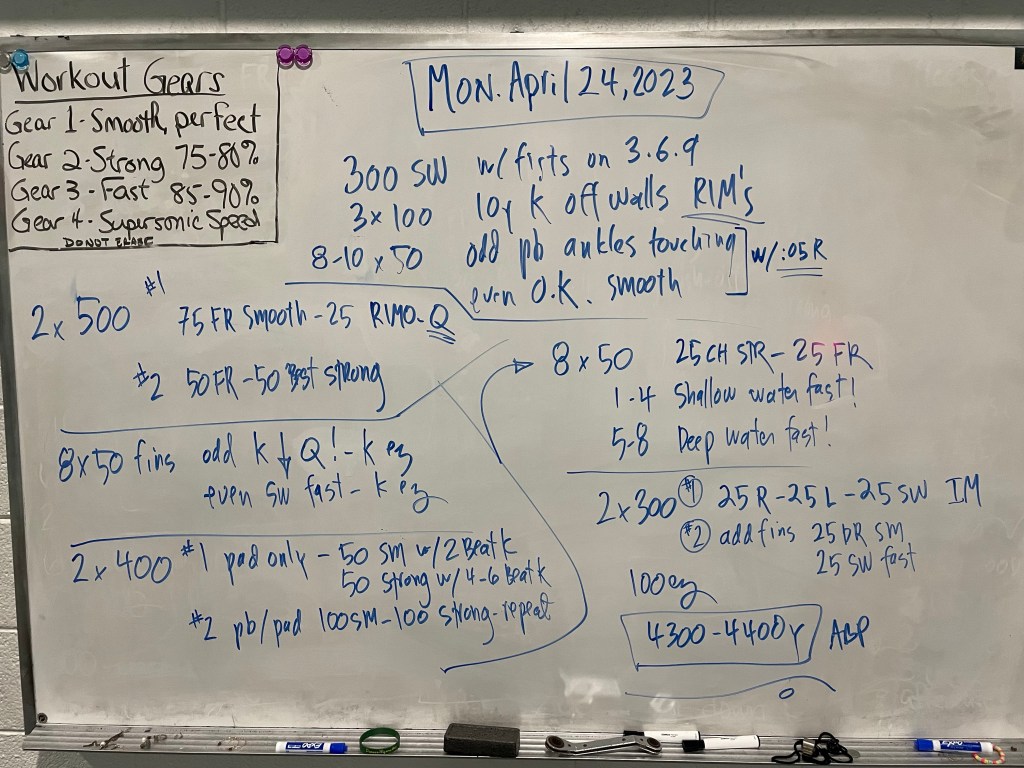 Workout Gears
Gear 1 - Smooth, perfect
Gear 2 - Strong 75-80%
Gear 3 - Fast 85-90%
Gear 4 - Supersonic Speed
DO NOT ERASE
MON. April 24, 2023
300 SW w/ fists on 3.6.9
3 x 100 10y K off walls RIM's
8-10 x 50 odd pb ankles touching
even O.K. smooth
w/ :05 R
2 x 500 #1 75 FR Smooth - 25 RIMO - Q
#2 50 FR - 50 Best strong
8 x 50 fins odd K ↓ Q! - K ez
even SW fast - K ez
2 x 400 #1 pad only - 50 SM w/ 2 Beat K
50 strong w/ 4-6 Beat K
#2 pb/pad 100 SM - 100 strong - repeat
8 x 50 25 CH STR - 25 FR
1-4 Shallow water fast!
5-8 Deep water fast!
2 x 300 #1 25 R - 25 L - 25 SW IM
#2 add fins 25 DR SM
25 SW fast
100 ez
4300 - 4400 Y ABP
EXPO
EXPO